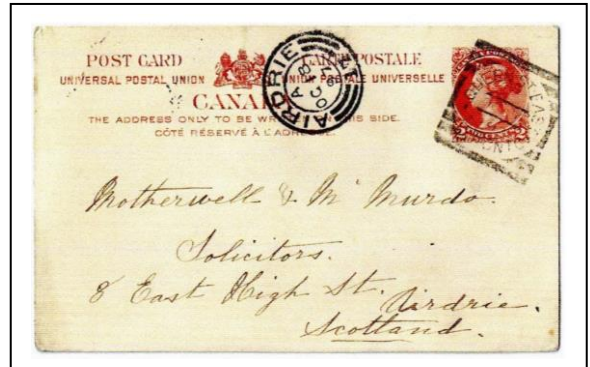 POST CARD CARTE POSTALE
UNIVERSAL POSTAL UNION UNION POSTALE UNIVERSELLE
CANADA
THE ADDRESS ONLY TO BE WRITTEN ON THIS SIDE.
CÔTÉ RÉSERVÉ À L'ADRESSE.
AIRDRIE
A
OC 8
TWO CENTS
2 2
Motherwell & Mc Murdo.
Solicitors.
8 East High St. Airdrie.
Scotland.